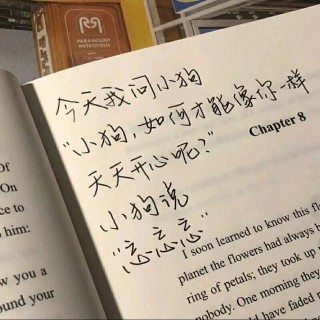 今天我问小狗
“小狗，如何才能像你一样
天天开心呢？”
小狗说
“忘忘忘”
Chapter 8
I soon learned to know this fl
planet the flowers had always h
ring of petals; they took up n
nobody. One morning they
ld have faded
Of
On
ce to
him:
w you a
ound your